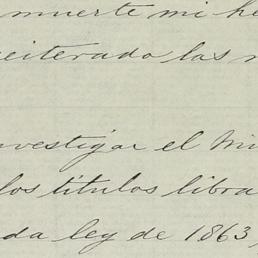 muerte mi he
reiterado las n
nvestigar el Mi
los títulos libra
da ley de 1863,